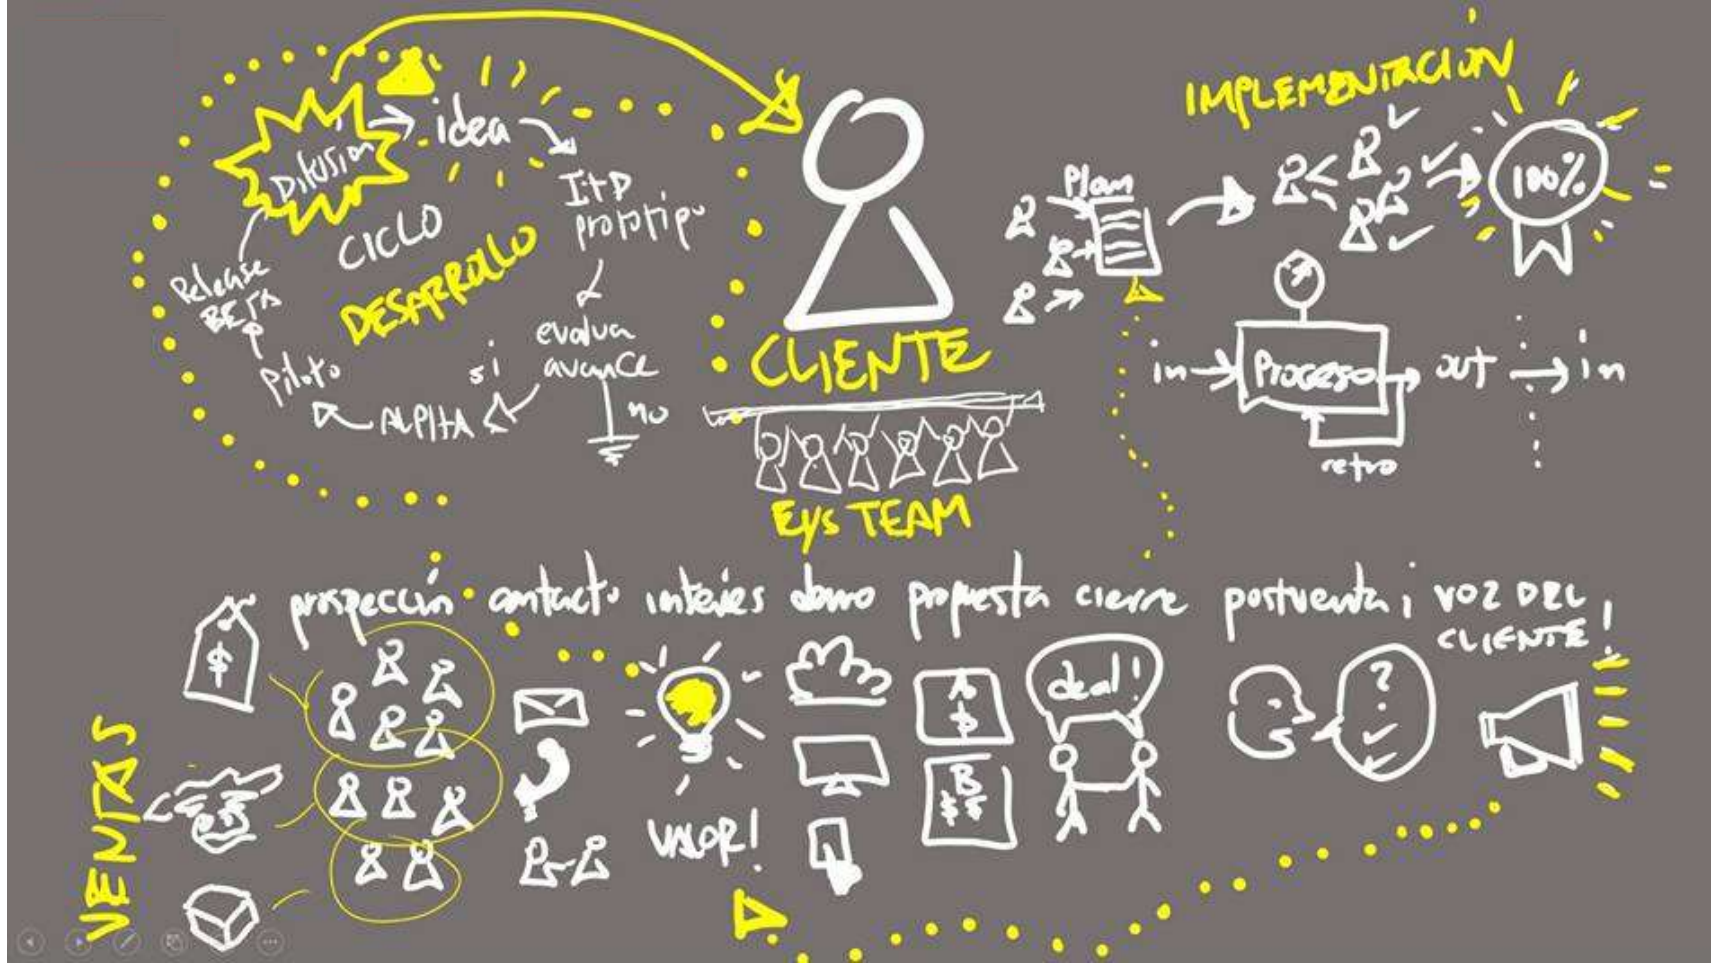 Difusión
idea
I+D
prototipo
evalua
avance
si
no
ALPHA
Piloto
Release
BETA
CICLO
DESARROLLO
CLIENTE
EYS TEAM
IMPLEMENTACION
Plan
100%
in
Proceso
out
in
retro
VENTAS
prospección
contacto
interés
demo
propuesta
cierre
postventa
¡VOZ DEL
CLIENTE!
$
VALOR!
A
$
B
$$
deal!
?